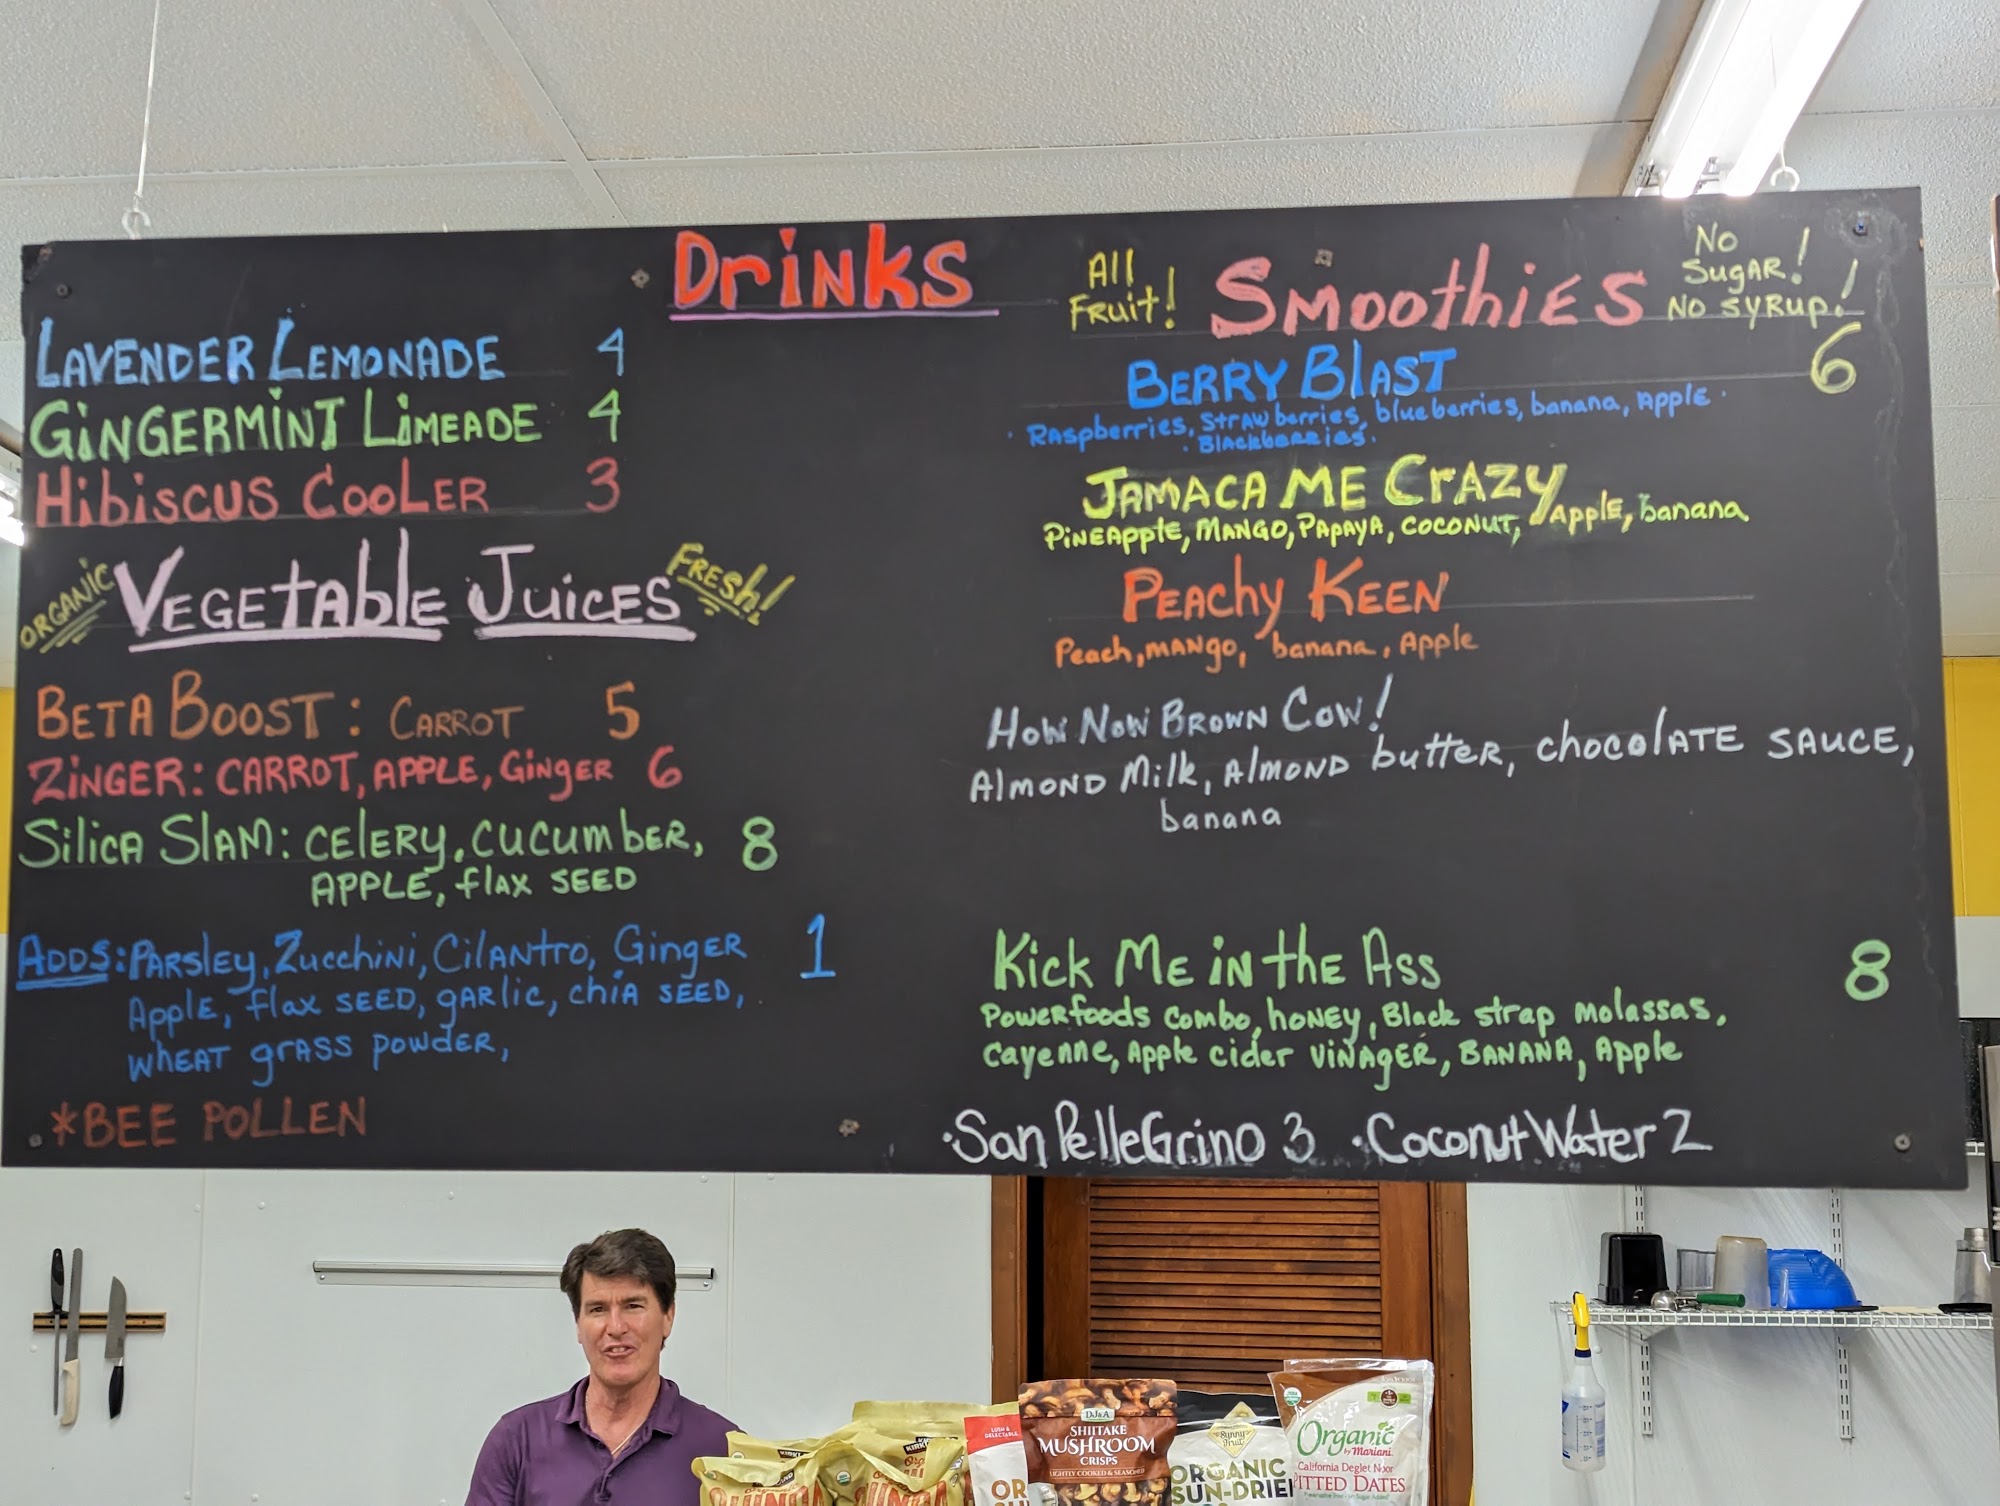 Drinks
LAVENDER LEMONADE 4
GINGERMINT LIMEADE 4
HIBISCUS COOLER 3
ORGANIC VEGETABLE JUICES FRESH!
BETA BOOST: CARROT 5
ZINGER: CARROT, APPLE, GINGER 6
Silica SLAM: CELERY, CUCUMBER, 8
APPLE, flax SEED
ADDS: PARSLEY, Zucchini, Cilantro, Ginger 1
Apple, flax SEED, garlic, chia SEED,
wheat grass powder,
*BEE POLLEN
All Fruit! Smoothies No Sugar! No Syrup!
BERRY BLAST 6
Raspberries, Strawberries, blueberries, banana, Apple
Blackberries
JAMACA ME CRAZY
PINEApple, MANGO, PAPAYA, COCONUT, Apple, banana
PEACHY KEEN
Peach, mango, banana, Apple
HOW NOW BROWN COW!
Almond Milk, Almond butter, chocolate SAUCE,
banana
Kick ME in the Ass 8
Powerfoods combo, honey, Black strap molassas,
cayenne, Apple cider vinager, BANANA, Apple
·San PelleGrino 3 ·Coconut Water 2
KIRKL
KIRKL
QUINOA
LUSH & DELECTABLE
DJ&A
SHIITAKE
MUSHROOM
CRISPS
LIGHTLY COOKED & SEASONED
Sunny Fruit
ORGANIC
SUN-DRIE
Organic
by Mariani
California Deglet Noor
PITTED DATES